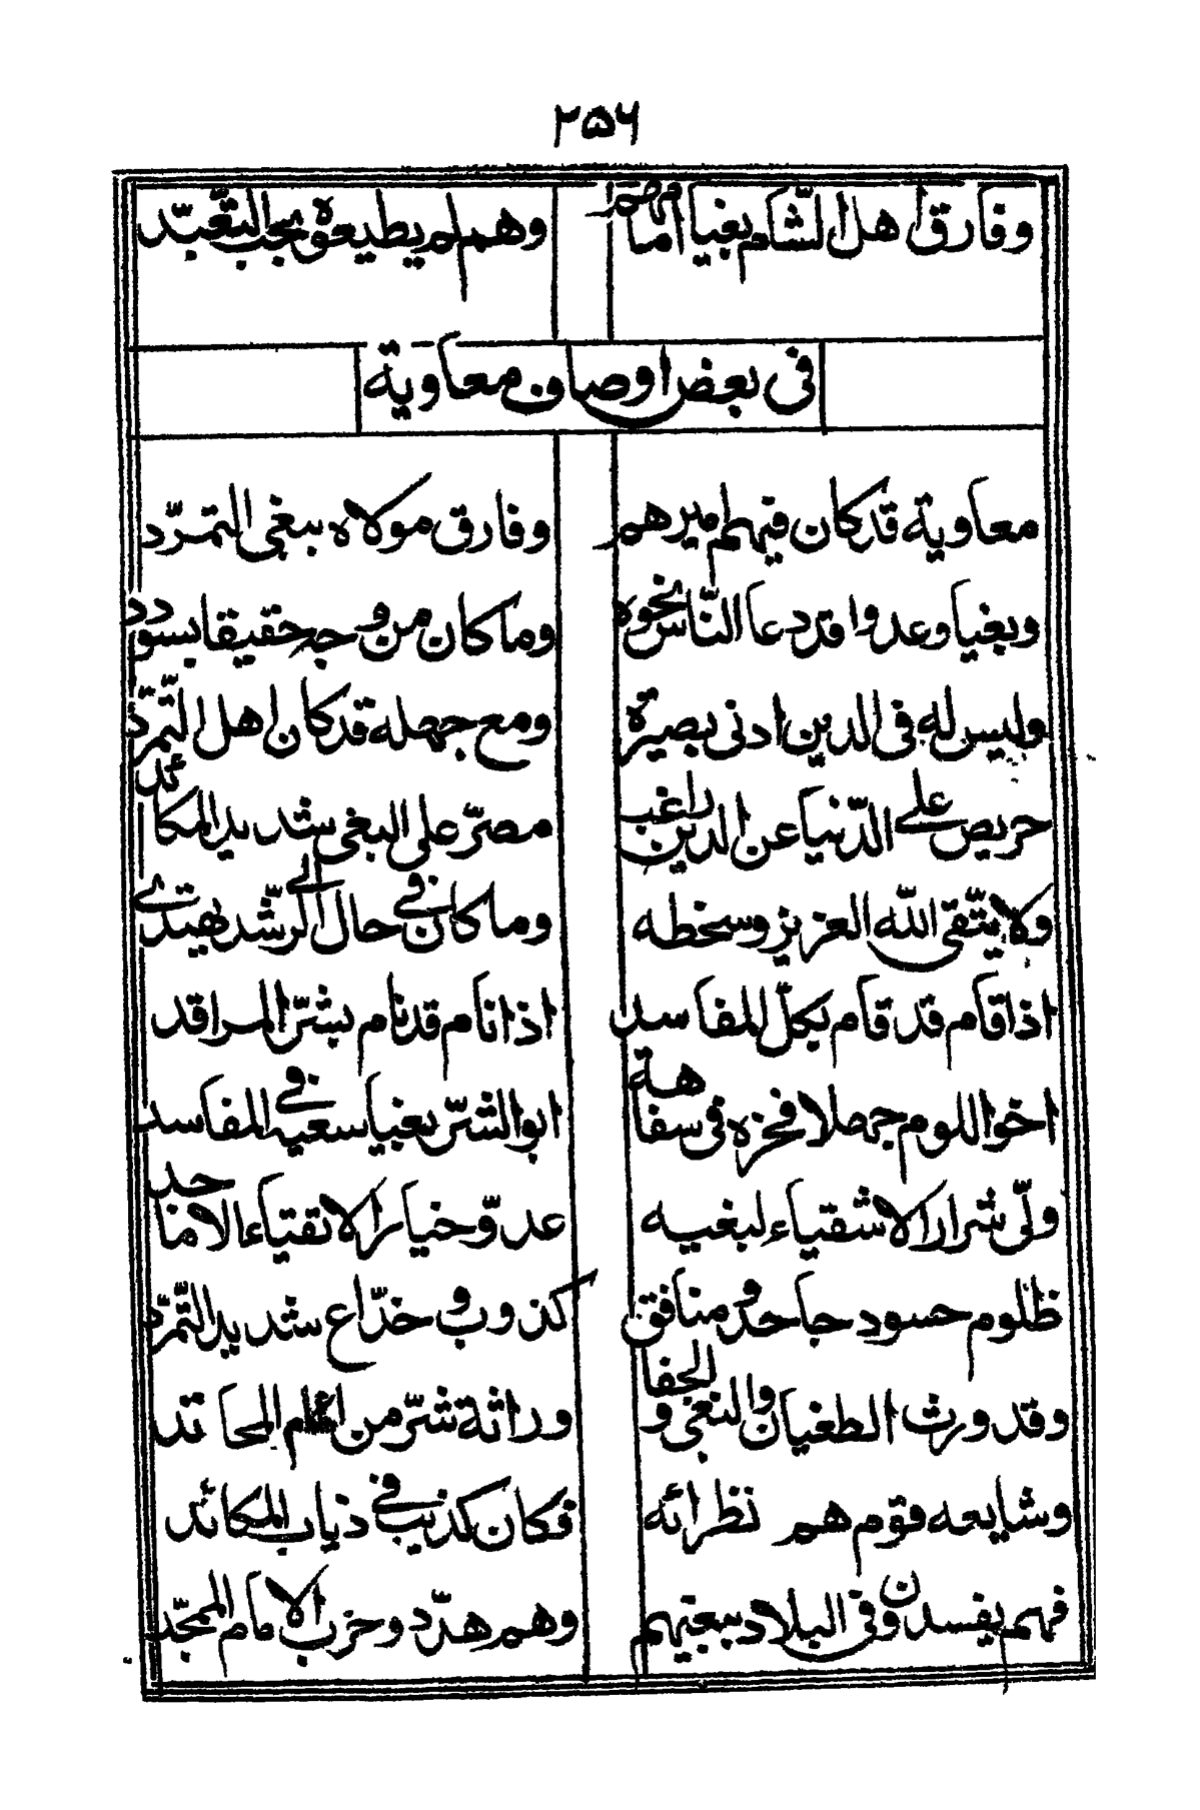 ۲۵۶
وفارق اهل الشّام بغيا امامهم وهم لم يطيعوه بحب التعّبّد
فى بعض اوصاف معاوية
معاوية قد كان فيهم اميرهم وفارق مولاه ببغى التمرّد
وبغيا وعدوا قد دعا النّاس نحوه وما كان من وجه حقيقا بسودد
وليس له فى الدين ادنى بصيرة ومع جهله قد كان اهل التّمرّد
حريص على الدّنيا عن الدين راغب مصرّ على البغى شديد المكائد
ولا يتّقى اللّه العزيز وسخطه وما كان فى حال الى الرّشد يهتدى
اذا قام قد قام بكلّ المفاسد اذا نام قد نام بشرّ المراقد
اخو اللوم جهلا فخره فى سفاهة ابو الشرّ بغيا سعيه فى المفاسد
ولّى شرار الاشقياء لبغيه عدوّ خيار الاتقياء الاماجد
ظلوم حسود جاحد ومنافق كذوب وخدّاع شديد التّمرّد
وقد ورث الطغيان والبغى والجفا وراثة شرّ من المحاتد
وشايعه قوم هم نظرائه فكان كذيب فى ذياب المكائد
فهم يفسدون فى البلاد ببغيهم وهم هدّدوا حزب الامام الممجّد